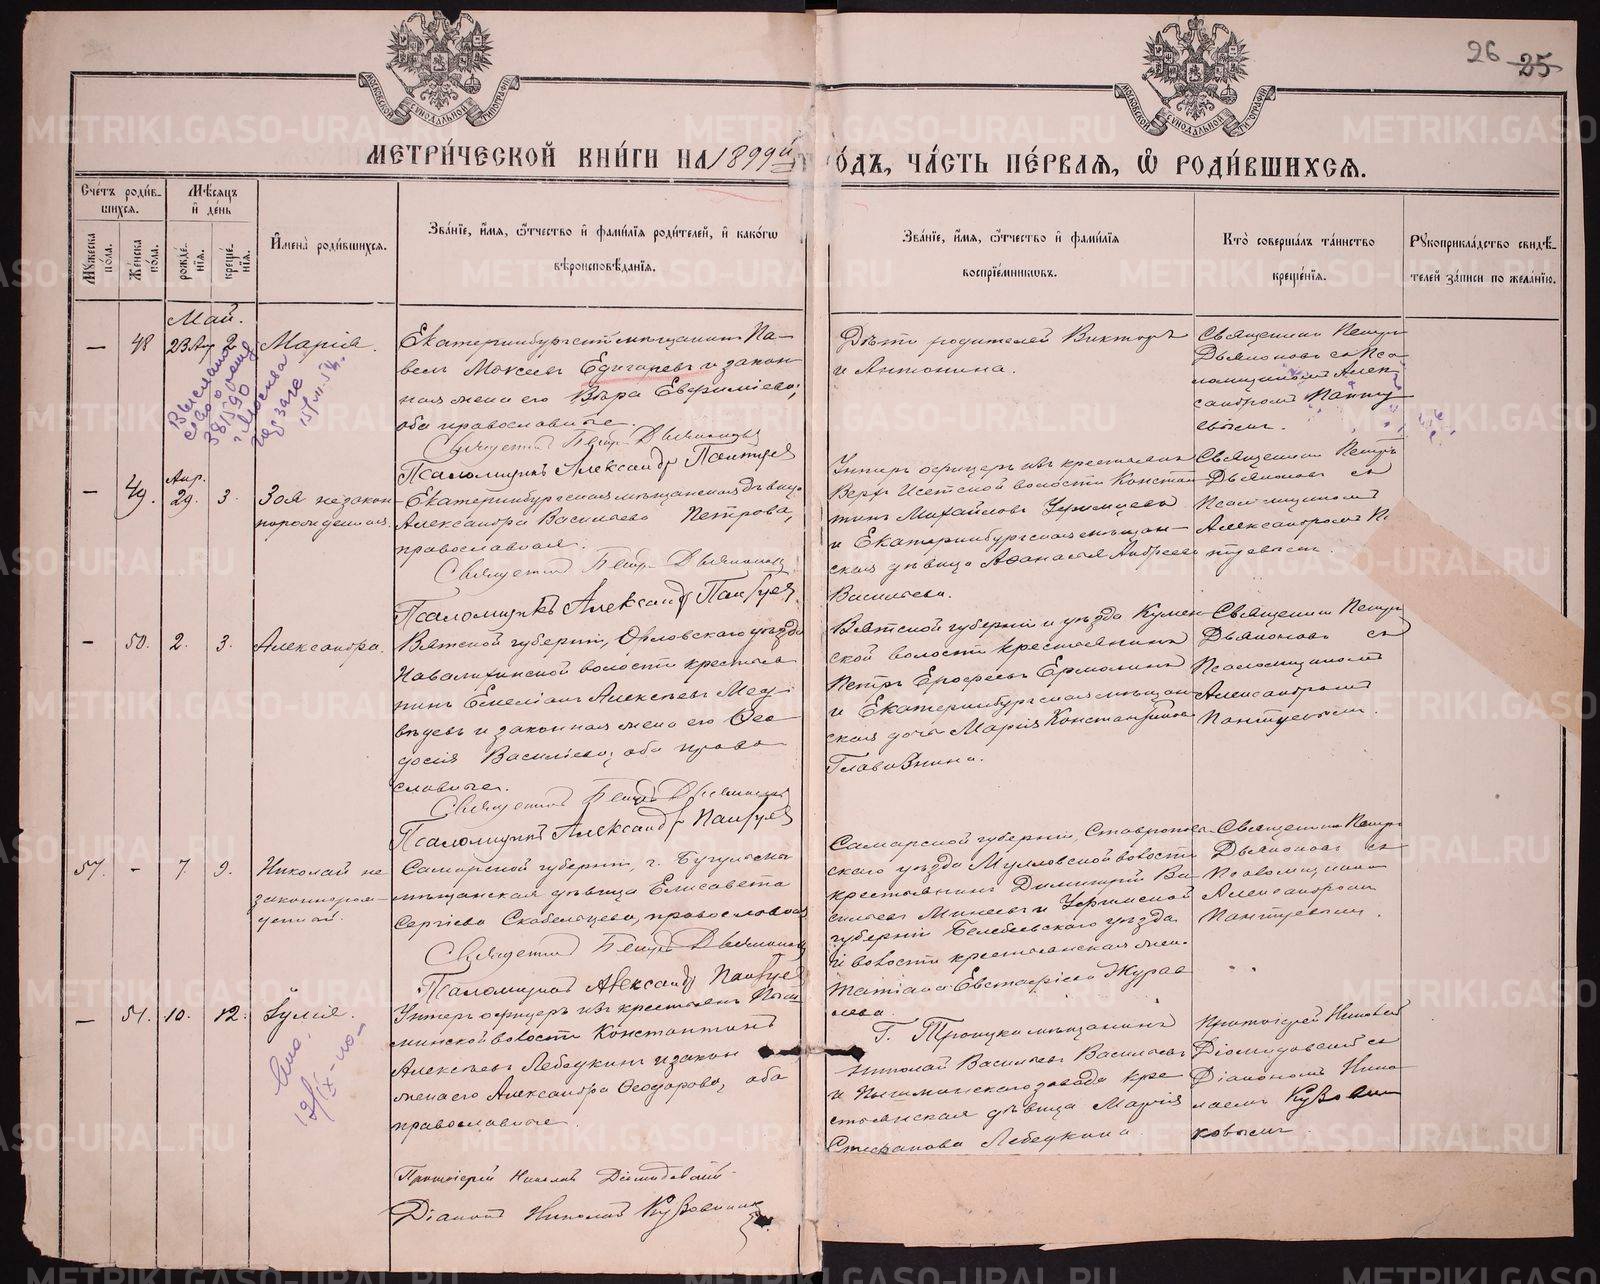 26 25
МЕТРИ́ЧЕСКОЙ КНИ́ГИ НА 1899й ГО́ДЪ, ЧА́СТЬ ПЕ́РВАЯ, Ѽ РОДИ́ВШИХСЯ.
Сче́тъ роди́вшихся.
Мꙋ́жеска по́ла.
Же́нска по́ла.
Мѣ́сяцъ и҆ де́нь
рожде́нїя.
креще́нїя.
И҆мена̀ роди́вшихся.
Зва́нїе, и҆́мя, ѻ҆́тчество и҆ фами́лїя роди́телей, и҆ како́гѡ
вѣроисповѣ́данїя.
Зва́нїе, и҆́мя, ѻ҆́тчество и҆ фами́лїя
воспрїе́мниковъ.
Кто̀ соверша́лъ та́инство
креще́нїя.
Рꙋкоприкла́дство свидѣ́-
телей за́писи по жела́нїю.
Май.
— 48 23 Ап 2 Марія.
Екатеринбургскій мѣщанинъ Па-
велъ Моксеевъ Едигаревъ и закон
ная жена его Вѣра Евфиміева,
оба православные.
Священникъ Петръ Дьяконовъ
Псаломщикъ Александръ Пантуевъ
Дѣти родителей Викторъ
и Антонина.
Священникъ Петръ
Дьяконовъ съ Пса-
ломщикомъ Алек-
сандромъ Панту
евымъ.
Апр.
— 49. 29. 3. Зоя незакон
норожденная.
Екатеринбургская мѣщанская дѣвица
Александра Васильева Петрова,
православная.
Священникъ Петръ Дьяконовъ
Псаломщикъ Александръ Пантуевъ
Унтеръ офицеръ изъ крестьянъ
Верхъ Исетской волости Констан
тинъ Михайловъ
и Екатеринбургская мѣщан-
ская дѣвица Афанасія Андреева
Васильева.
Священникъ Петръ
Дьяконовъ съ
Псаломщикомъ
Александромъ П
туевымъ.
— 50. 2. 3. Александра.
Вятской губерніи, Орловскаго уѣзда
волости крестья
нинъ Емеліанъ Алексѣевъ Мед-
вѣдевъ и законная жена его Ѳео
досія Васильева, оба право
славные.
Священникъ Петръ Дьяконовъ
Псаломщикъ Александръ Пантуевъ
Вятской губерніи и уѣзда Кумен
ской волости крестьянинъ
Петръ Ерофеевъ Ермолинъ
и Екатеринбургская мѣщан
ская дочь Марія Константинова
Священникъ Петръ
Дьяконовъ съ
Псаломщикомъ
Александромъ
Пантуевымъ.
57. - 7 9. Николай не
законнорож-
денный.
Самарской губерніи, г. Бугульмы
мѣщанская дѣвица Елисавета
Сергіева Скабельцева, православная
Священникъ Петръ Дьяконовъ
Псаломщикъ Александръ Пантуевъ
Самарской губерніи, Ставрополь
скаго уѣзда Мулловской волости
крестьянинъ Димитрій Ва
сильевъ Минеевъ и Уфимской
губерніи Белебеевскаго уѣзда
й волости крестьянская жена
Татіана Евстафіева Журав
лева.
Священникъ Петръ
Дьяконовъ съ
Псаломщикомъ
Александромъ
Пантуевымъ.
— 51. 10. 12. Іулія.
Унтеръ офицеръ изъ крестьянъ Пыш
минской волости Константинъ
Алексѣевъ Лебедкинъ и закон
жена его Александра Ѳеодорова, оба
православные.
Г. Троицка мѣщанинъ
Николай Васильевъ Васильевъ
и Пышминскаго завода кре
стьянская дѣвица Марія
Стефанова Лебедкина.
Протоіерей Николай
Діомидовскій съ
Діакономъ Нико
лаемъ Кузовни
ковымъ.
Протоіерей Николай Діомидовскій
Діаконъ Николай Кузовниковъ